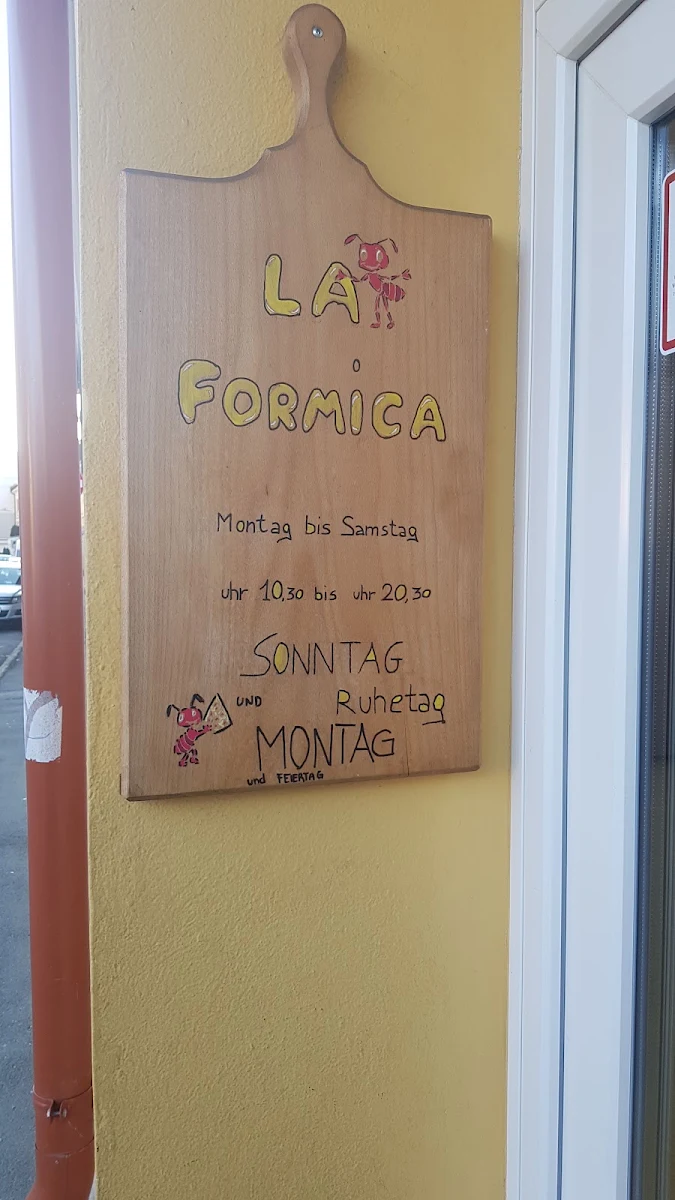 LA
FORMICA
Montag bis Samstag
uhr 10,30 bis uhr 20,30
SONNTAG
UND Ruhetag
MONTAG
und FEIERTAG